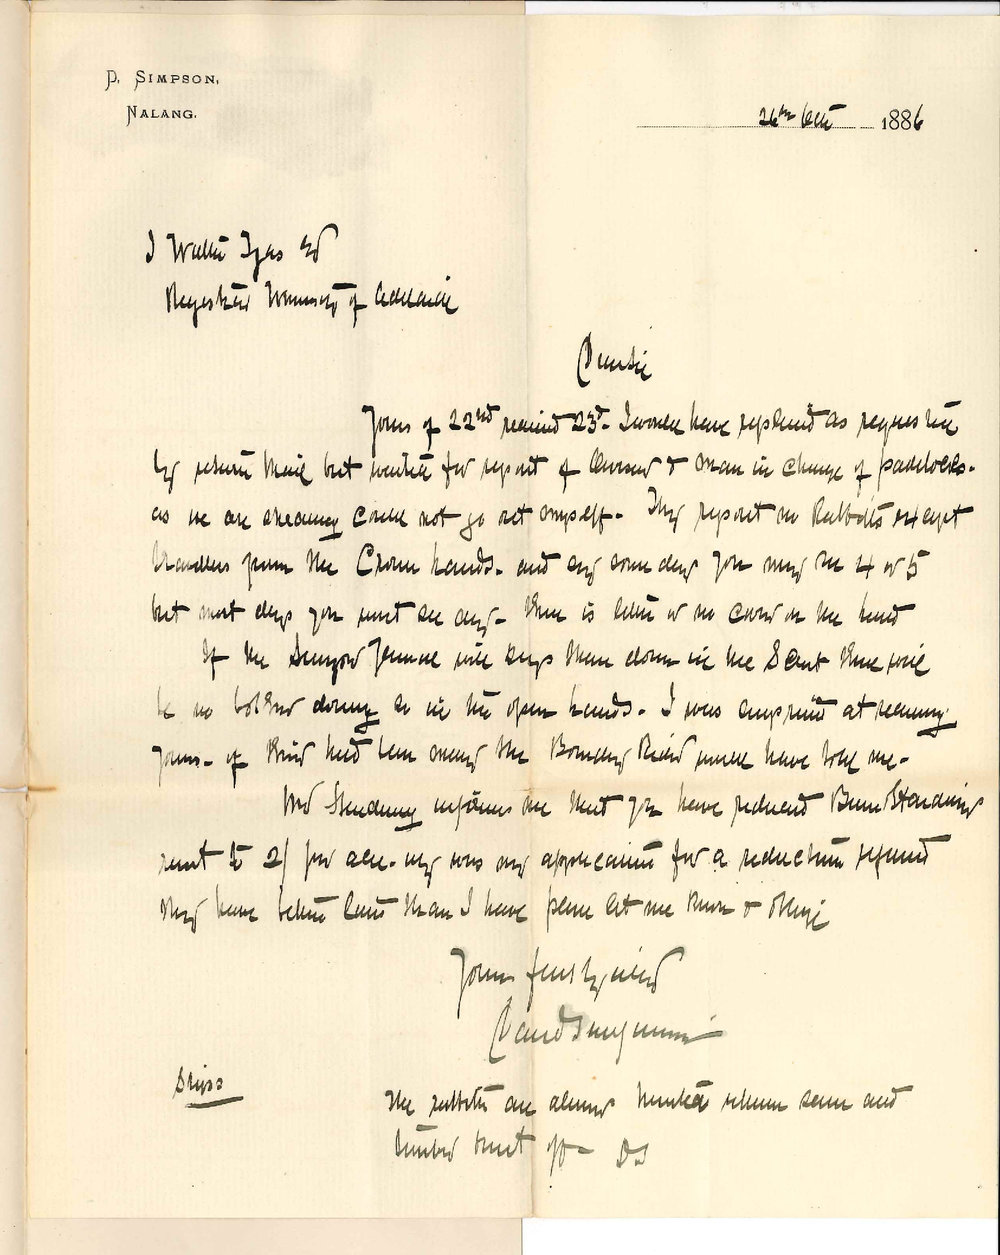 D. SIMPSON,
NALANG.
26th Octr 1886
J Walter Tyas Esq
Registrar University of Adelaide
Dear Sir
Yours of 22nd received 23d. I would have replied as requested
by return Mail but waited for report of & man in charge of paddocks.
as we are shearing could not go out myself. They report no Rabbits except
travellers from the Crown Lands. and say some days you may see 4 or 5
but most days you wont see any. there is little or no cover on the land
If the Surveyor General will keep them down in the Scrub there will
be no bother doing so in the open lands. I was surprised at receiving
yours. if there had been many the Boundary Rider would have told me.
Mr informs me that you have reduced
rent to 2/ per acre. why was my application for a reduction refused
they have better land than I have please let me know & oblige
Yours faithfully
David Simpson
The rabbits are always hunted when seen and
burrows dug DS